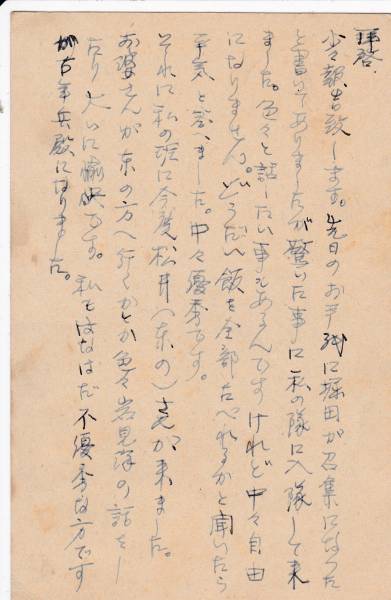 拝啓、
少々報告致します。先日のお手紙に堀田が召集になった
と書いてありましたが驚いた事に私の隊に入隊して来
ました。色々と話したい事もあるんですけれど中々自由
になりません。どうだい飯を全部たべれるかと聞いたら
平気と答へました。中々優秀です。
それに私の班に今度松井(東の)さんが来ました。
お婆さんが東の方へ行くかとか色々岩見澤の話をし
たり大いに愉快です。私もはなはだ不優秀な方です
が古年兵殿になりました。